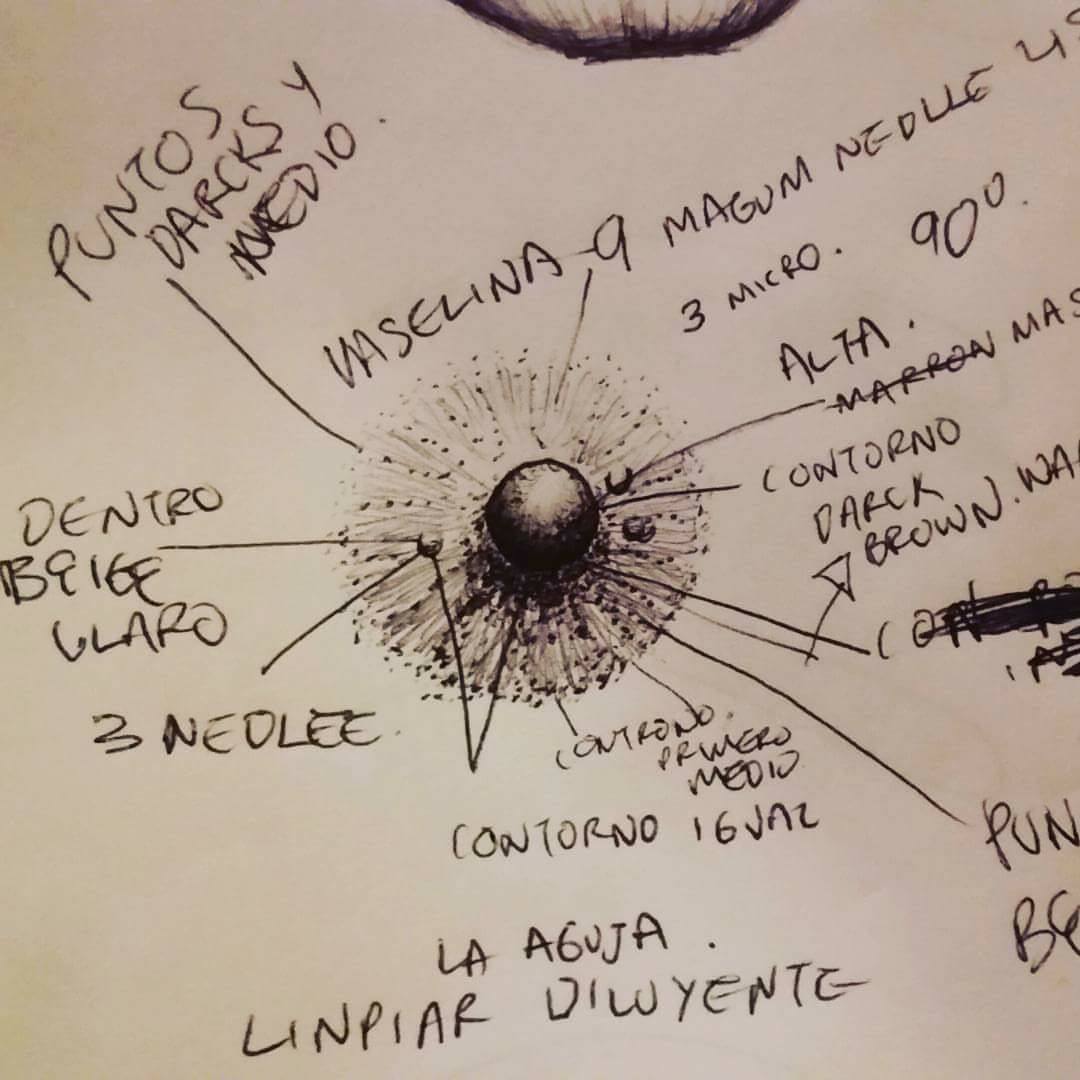 PUNTOS
DARCKS Y
MEDIO.
VASELINA - 9 MAGUM NEDLLE
3 MICRO. 90º.
ALTA.
MARRON MAS
CONTORNO
DARCK
BROWN.
DENTRO
BEIGE
CLARO
3 NEDLEE.
CONTRONO.
PRIMERO
MEDIO
CONTORNO IGUAL
PUN
BE
LA AGUJA.
LINPIAR DILUYENTE